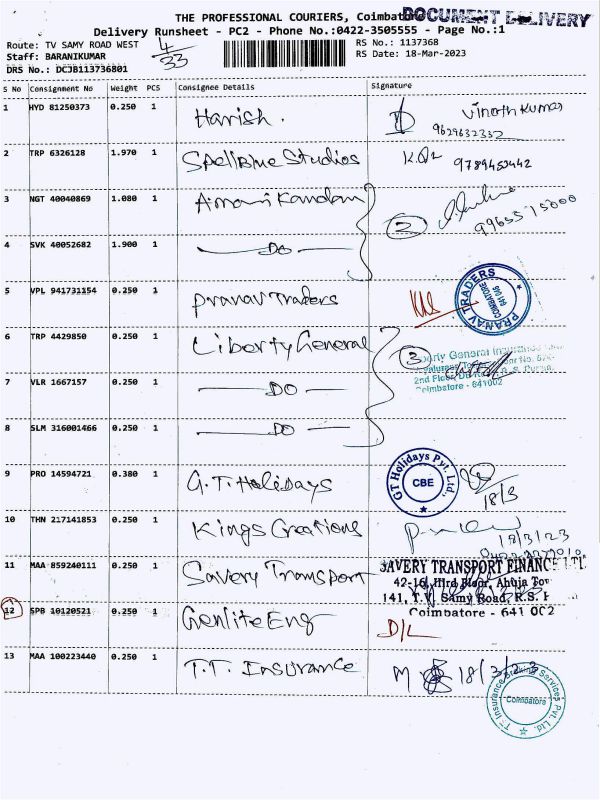 THE PROFESSIONAL COURIERS, Coimbatore DOCUMENT DELIVERY
Delivery Runsheet - PC2 - Phone No.:0422-3505555 - Page No.:1
Route: TV SAMY ROAD WEST 4/33 RS No.: 1137368
Staff: BARANIKUMAR RS Date: 18-Mar-2023
DRS No.: DCJB113736801
S No Consignment No Weight PCS Consignee Details Signature
1 HYD 81250373 0.250 1 Harish. Vinoth Kumar
9629632332
2 TRP 6326128 1.970 1 SpellBlue Studios 9789450442
3 NGT 40040869 1.080 1 2
4 SVK 40052682 1.900 1 DO
5 VPL 941731154 0.250 1 Pranav Traders PRANAV TRADERS COIMBATORE 641 046
6 TRP 4429850 0.250 1 Liberty General 3 Liberty General Insurance
7 VLR 1667157 0.250 1 DO 2nd Floor,
Coimbatore - 641002
8 SLM 316001466 0.250 1 DO
9 PRO 14594721 0.380 1 G.T. Holidays GT Holidays Pvt. Ltd., CBE 18/3
10 THN 217141853 0.250 1 Kings Creations 18/3/23
11 MAA 859240111 0.250 1 Savery Transport SAVERY TRANSPORT FINANCE LTD
42-16, IIIrd Floor, Ahuja Tow
141, T.V. Samy Road, R.S. P
12 SPB 10120521 0.250 1 Genlite Eng Coimbatore - 641 002
D/L
13 MAA 100223440 0.250 1 T.T. Insurance M 18/3/23
T.T. Insurance Broking Services Pvt. Ltd. Coimbatore